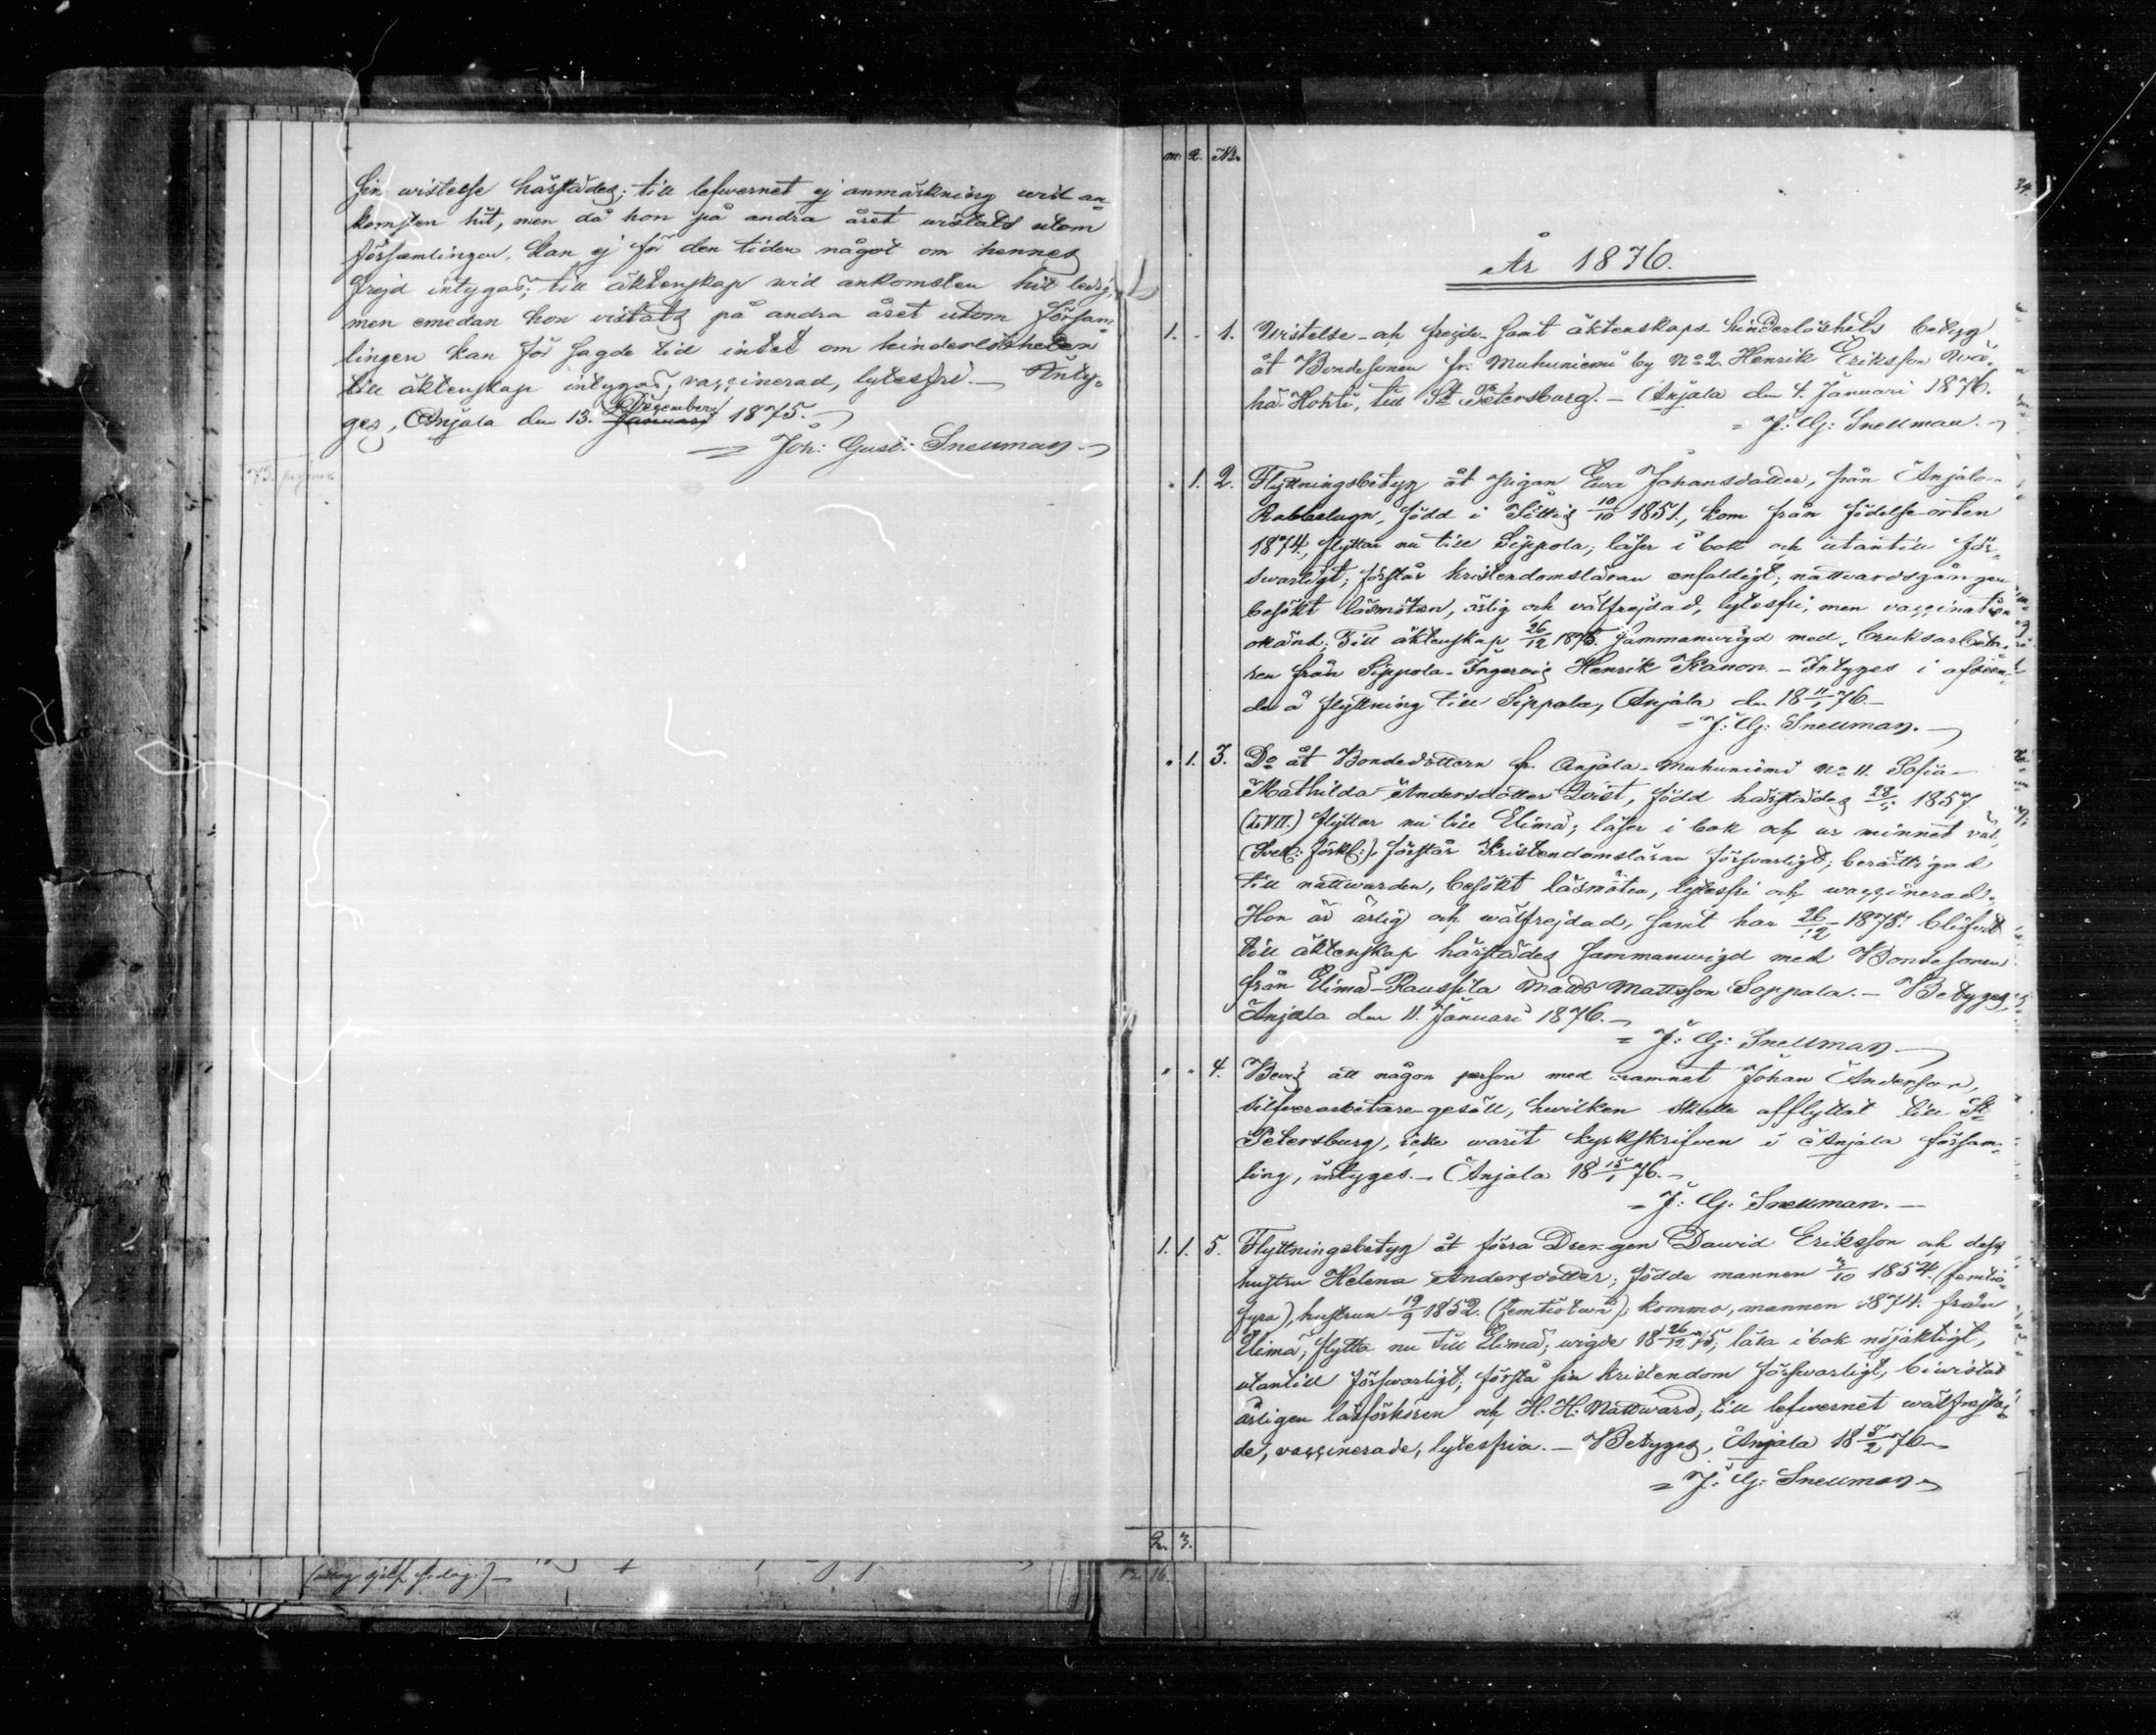 sin wistelse härstädes; till lefwernet ej anmärkning wid an-
komsten hit, men då hon på andra året wistats utom
församlingen, kan ej för den tiden något om hennes
frejd intygas; till äktenskap wid ankomsten hit ledig,
men emedan hon vistats på andra året utom försam-
lingen kan för sagde tid intet om hinderlösheten
till äktenskap intygas; vaccinerad, lytesfri. — Inty-
ges, Anjala den 13. Januari December 1875. —
= Joh: Gust: Snellman. —
m. q. No.
34.
År 1876.
1. - 1. Wistelse- och frejde- samt äktenskaps hinderlöshets betyg
åt Bondesonen fr. Muhuniemi by No 2. Henrik Eriksson Wä-
hä-Hohti, till St Petersburg. — Anjala den 4. Januari 1876.
= J: G: Snellman. —
- 1. 2. Flyttningsbetyg åt pigan Ewa Johansdotter, från Anjala-
Rabbelugn, född i Sittis 10/10 1851., kom från födelse-orten
1874., flyttar nu till Sippola; läser i bok och utantill för-
swarligt; förstår kristendomsläran enfaldigt; nattvardsgången
besökt läsmöten, ärlig och välfrejdad, lytesfri, men vaccination
okänd; Till äktenskap 26/12 1875. sammanwigd med bruksarbeta-
ren från Sippola-Ingerois Henrik Kanon. — Intyges i afseen-
de å flyttning till Sippola, Anjala den 18 11/1 76. —
= J: G: Snellman. —
- 1. 3. Do åt Bondedottern fr. Anjala-Muhuniemi No 11. Sofia
Mathilda Andersdotter Qvist, född härstädes 28/5 1857
flyttar nu till Elimä; läser i bok och ur minnet väl,
(Sveb: förkl:), förstår Kristendomsläran försvarligt; berättigad
till nattwarden, besökt läsmöten, lytesfri och waccinerad.
Hon är ärlig och wälfrejdad, samt har 26/12 1875. blifwit
till äktenskap härstädes sammanwigd med Bondesonen
från Elimä-Raussila Mats Mattsson Soppala. — Betyges,
Anjala den 11. Januari 1876. —
= J: G: Snellman —
- - 4. Bevis att någon person med namnet Johan Anderson,
silfverarbetare-gesäll, hwilken skulle afflyttat till St
Petersburg, icke warit kyrkskrifven i Anjala försam-
ling, intyges. — Anjala 18 15/1 76. —
= J: G: Snellman. —
1. 1. 5. Flyttningsbetyg åt förra Drengen Dawid Eriksson och dess
hustru Helena Andersdotter; födde mannen 3/10 1854. (femtio-
fyra), hustrun 19/9 1852. (femtiotwå); kommo, mannen 1874. från
Elimä, flytta nu till Elimä; wigde 18 26/12 75; läsa i bok nöjaktigt,
utantill försvarligt; förstå sin kristendom försvarligt; biwistat
årligen läsförhören och H. H. Nattward; till lefwernet wälfrejda-
de, vaccinerade, lytesfria. — Betyges, Anjala 18 5/2 76 —
= J: G: Snellman —
2. 3.
16.